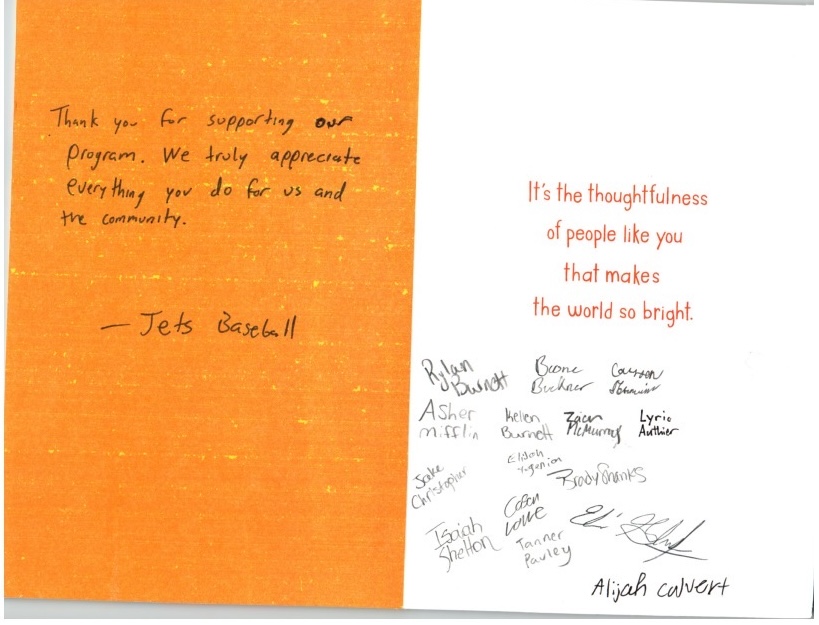 Thank you for supporting our
program. We truly appreciate
everything you do for us and
the community.
— Jets Baseball
It's the thoughtfulness
of people like you
that makes
the world so bright.
Rylan
Burnett
Boone
Buckner
Asher
Mifflin
Kellen
Burnett
Zian
McMurray
Lyric
Authier
Jake
Christopher
Elijah
Brody Shanks
Isaiah
Shelton
Cason
Lowe
Tanner
Pauley
Eli
Alijah Calvert